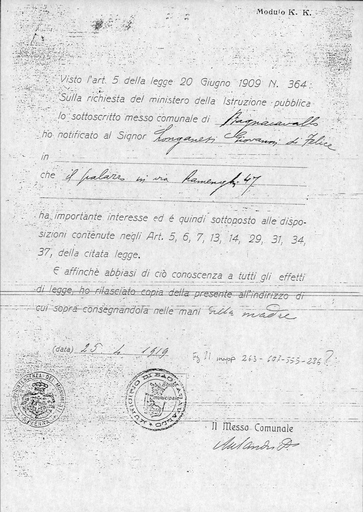 Modulo K. K.
Visto l'art. 5 della legge 20 Giugno 1909 N. 364:
Sulla richiesta del ministero della Istruzione pubblica
lo sottoscritto messo comunale di Bagnacavallo
ho notificato al Signor Longanesi Giovanni di Felice
in
che il palazzo in via Ramenghi 47
ha importante interesse ed é quindi sottoposto alle dispo-
sizioni contenute negli Art. 5, 6, 7, 13, 14, 29, 31, 34,
37, della citata legge.
E affinchè abbiasi di ciò conoscenza a tutti gli effetti
di legge, ho rilasciato copia della presente all'indirizzo di
cui sopra consegnandola nelle mani della madre
(data) 25 4 1919
Il Messo Comunale